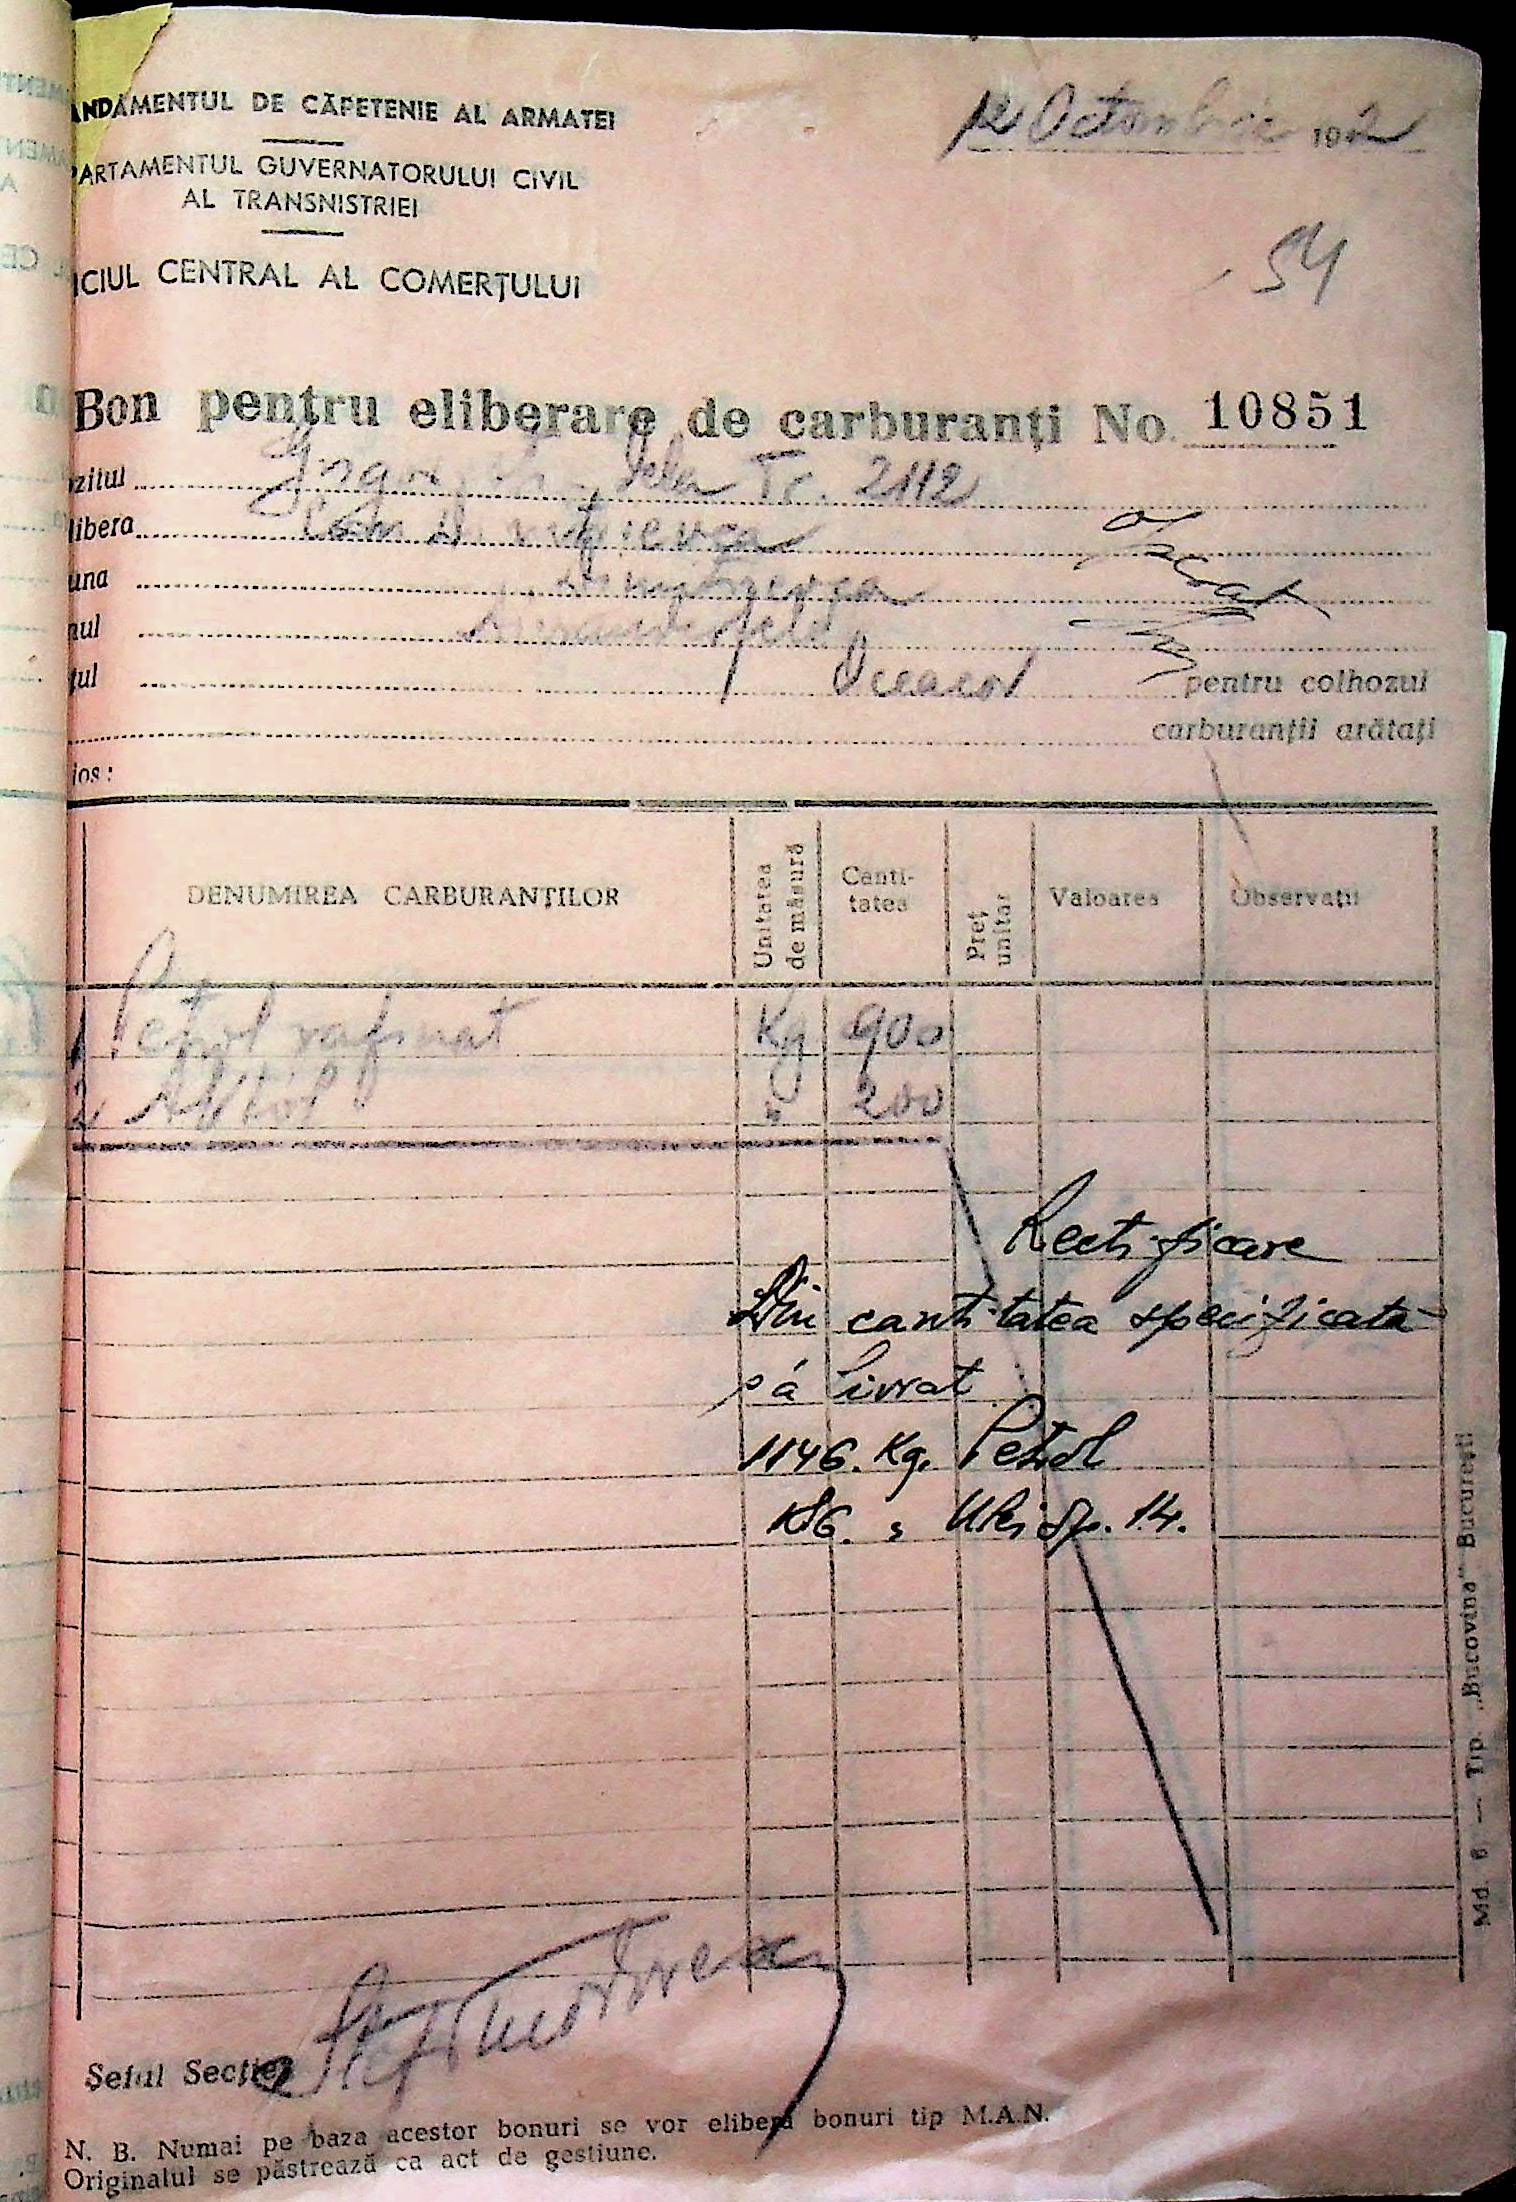 ANDAMENTUL DE CĂPETENIE AL ARMATEI
PARTAMENTUL GUVERNATORULUI CIVIL
AL TRANSNISTRIEI
ICIUL CENTRAL AL COMERȚULUI
12 Octombrie 1942
54
Bon pentru eliberare de carburanți No. 10851
ozitul Tr. 2112
libera
una
nul
țul Oceacov pentru colhozul
carburanții arătați
jos:
DENUMIREA CARBURANȚILOR Unitatea de măsură Canti-tatea Preț unitar Valoarea Observații
1 Petrol rafinat Kg 900
2 " 200
Rectificare
Din cantitatea specificata
s'a livrat
1146. Kg. Petrol
Ulei sp. 14.
Șeful Secției
N. B. Numai pe baza acestor bonuri se vor elibera bonuri tip M.A.N.
Originalul se păstrează ca act de gestiune.
Md. 6 — Tip. „Bucovina" București